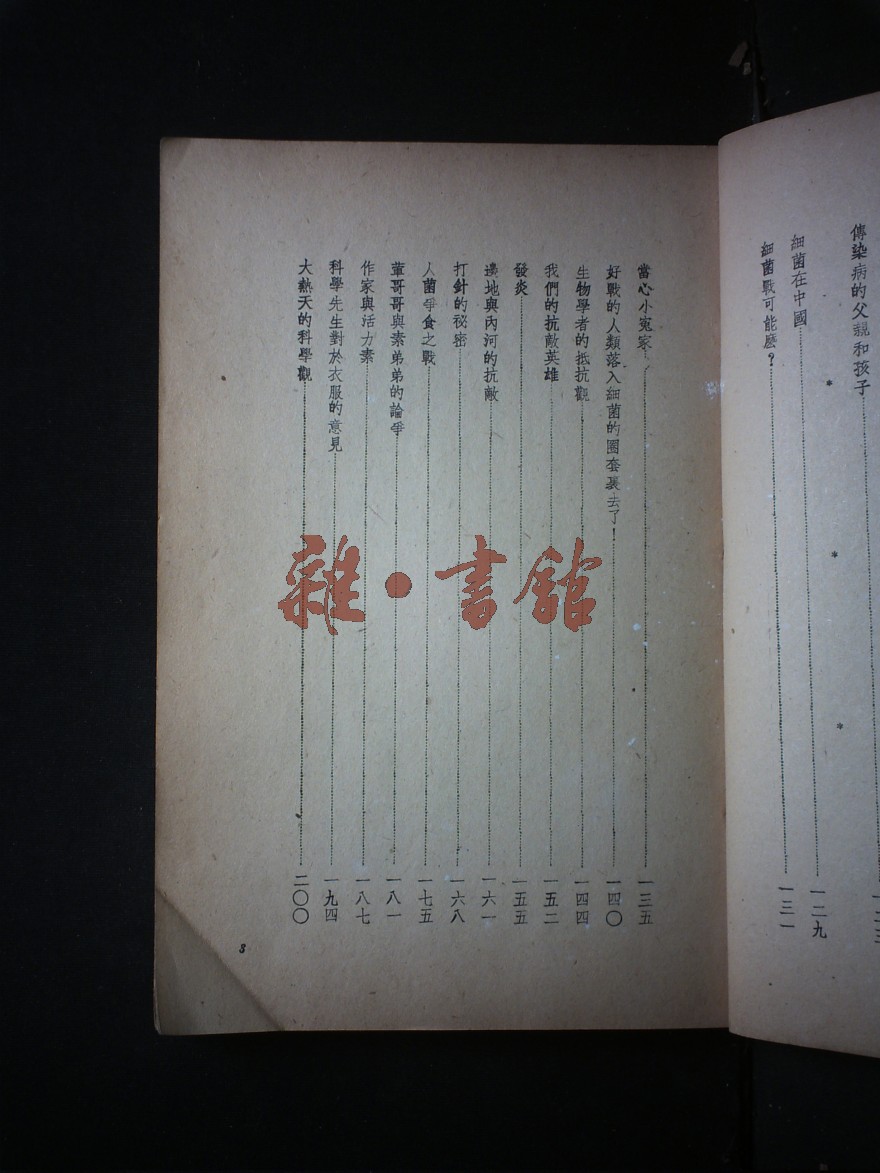 傳染病的父親和孩子
細菌在中國 一二九
細菌戰可能麽？ 一三一
* * *
當心小寃家 一三五
好戰的人類落入細菌的圈套裏去了！ 一四〇
生物學者的抵抗觀 一四四
我們的抗敵英雄 一五二
發炎 一五五
邊地與內河的抗敵 一六一
打針的祕密 一六八
人菌爭食之戰 一七五
葷哥哥與素弟弟的論爭 一八一
作家與活力素 一八七
科學先生對於衣服的意見 一九四
大熱天的科學觀 二〇〇
3
雜·書館